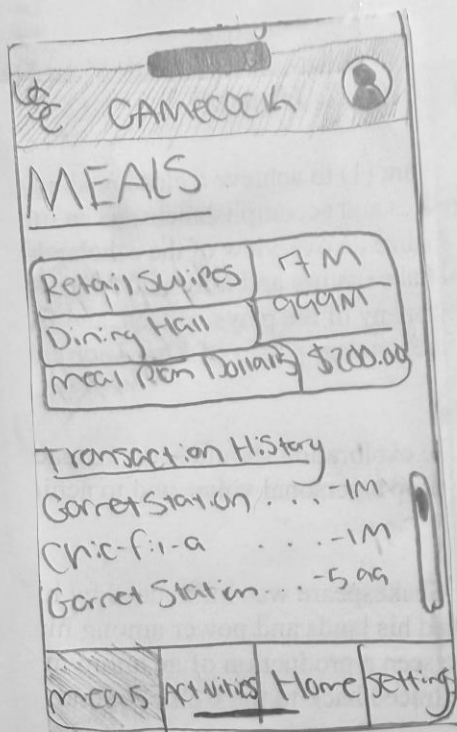 USC
GAMECOCK
MEALS
Retail Swipes 7M
Dining Hall 999M
meal Plan Dollars $200.00
Transaction History
Garnet Station . . . 1M
Chic-fil-a . . . -1M
Garnet Station . . -5.99
meals Activities Home Setting